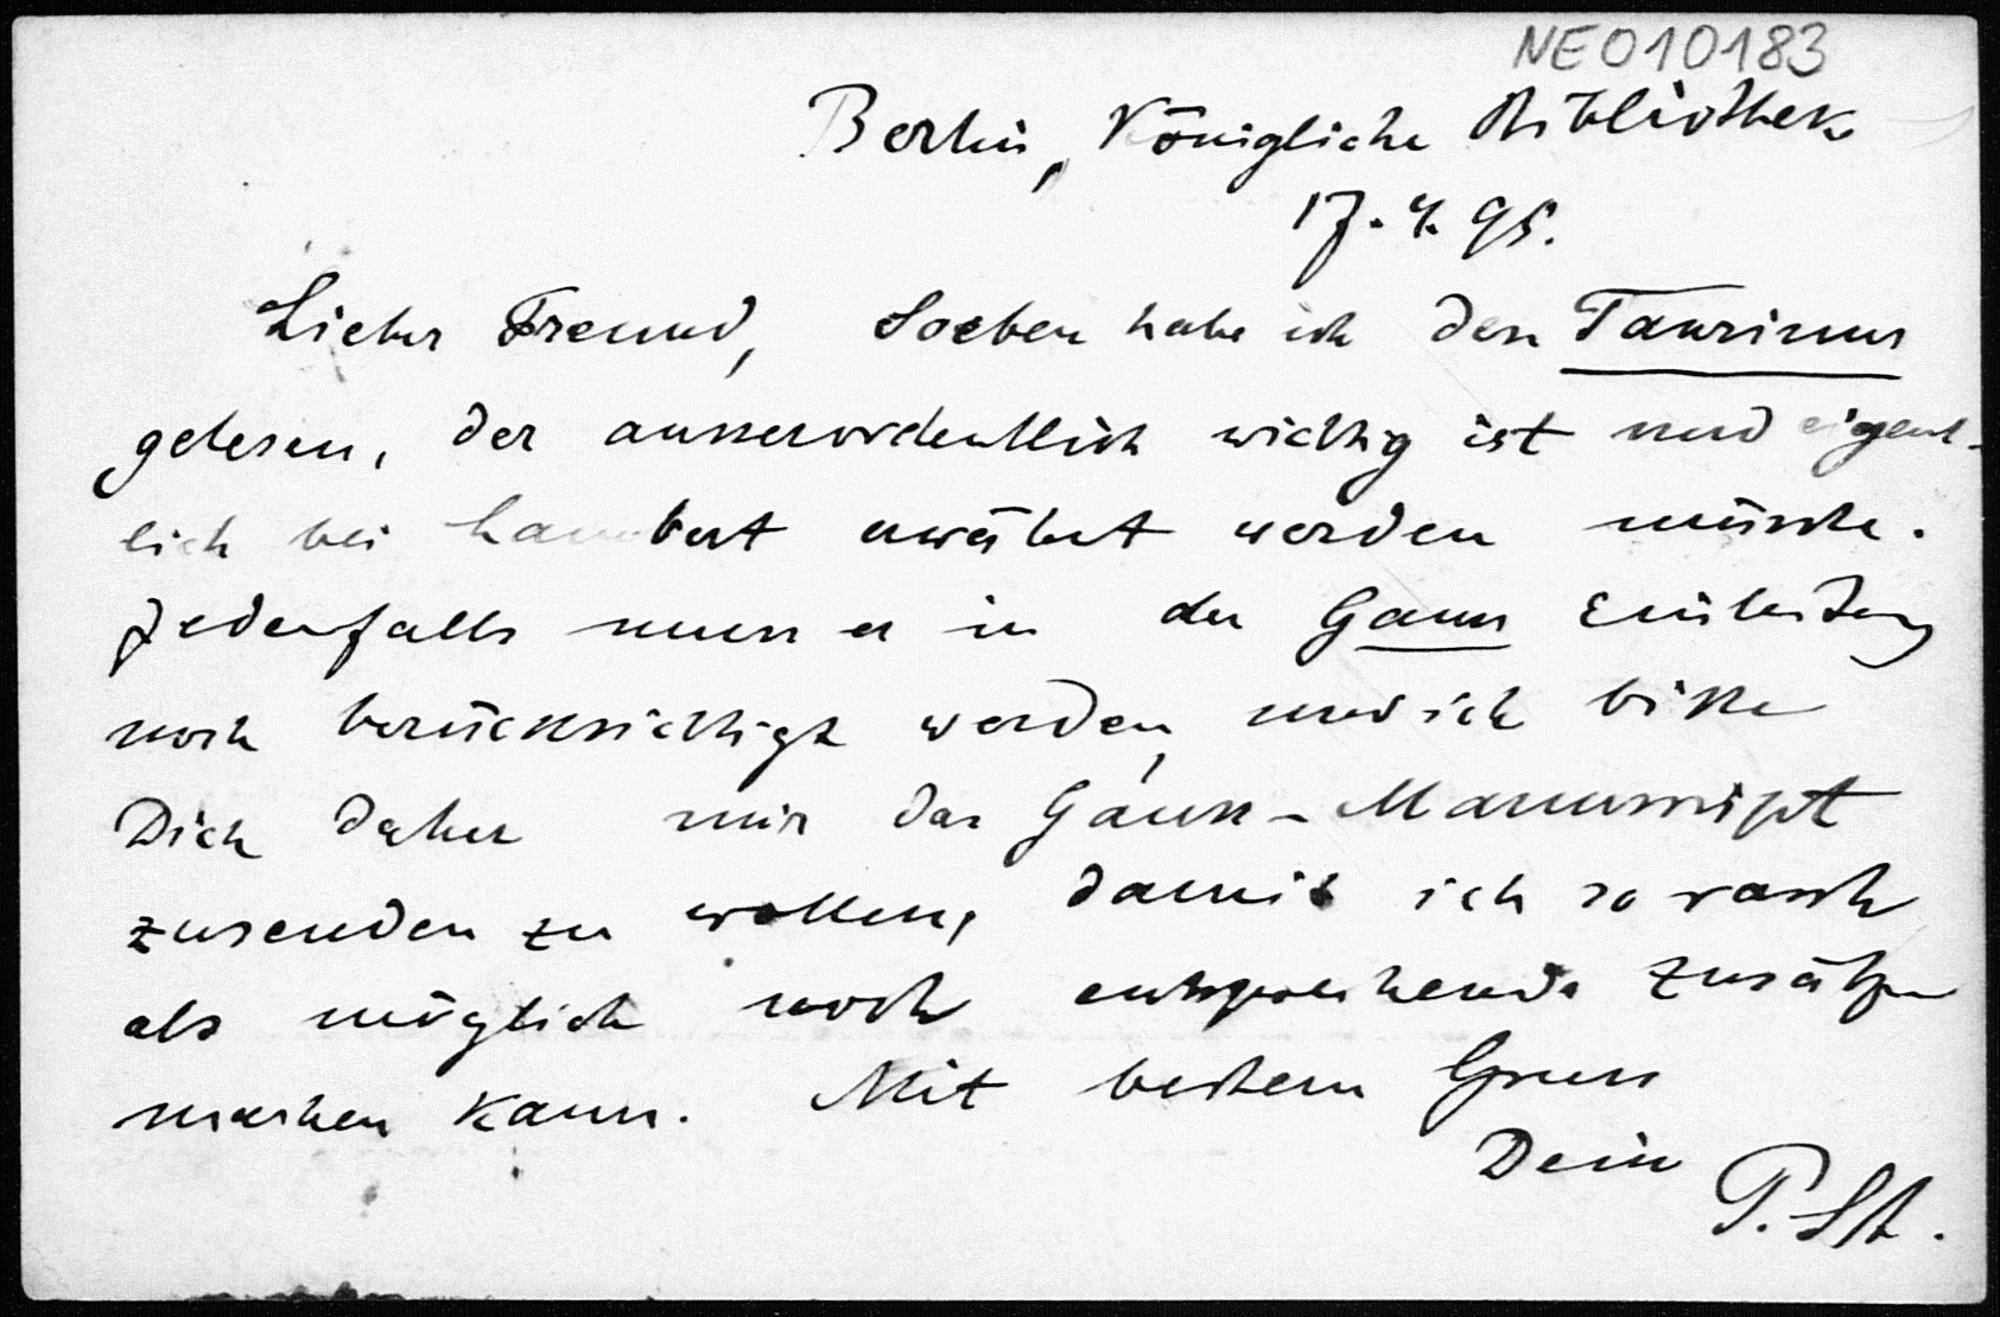 NE010183
Berlin, Königliche Bibliothek
17. 4. 95.
Lieber Freund, Soeben habe ich den Taurinus
gelesen, der ausserordentlich wichtig ist und eigent-
lich bei Lambert erwähnt werden müsste.
Jedenfalls muss er in der Gauss Einleitung
noch berücksichtigt werden, und ich bitte
Dich daher mir das Gauss-Manuscript
zusenden zu wollen, damit ich so rasch
als möglich noch entsprechende Zusätze
machen kann. Mit bestem Gruss
Dein
P. St.